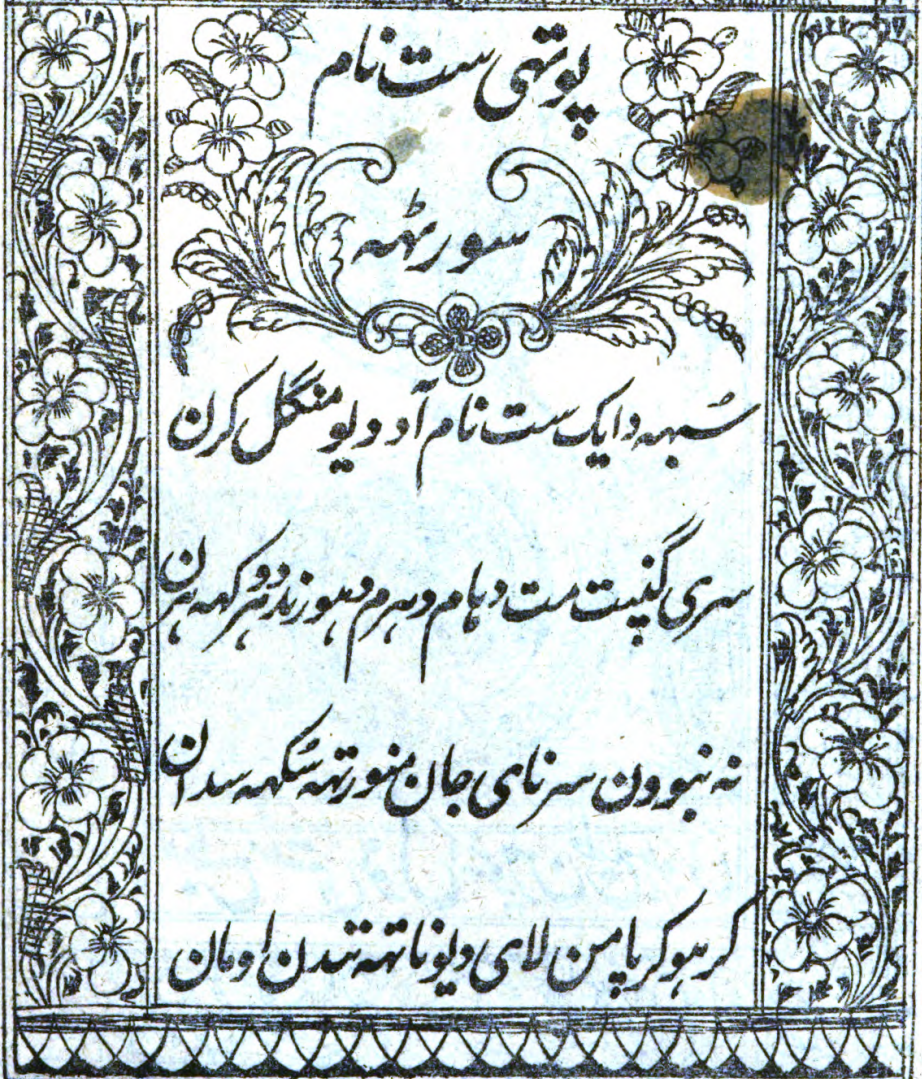 پوتھی ست نام
سورٹھہ
سُبھہ دایک ست نام آد دیو منگل کرن
سری گنپت مت دہام دہرم دہورندر ہر کہہ ہرن
نہ نبوون سرنای جان منورتہہ سُکہہ سدان
کرہو کرپا من لای دیوناتہہ نندن اومان